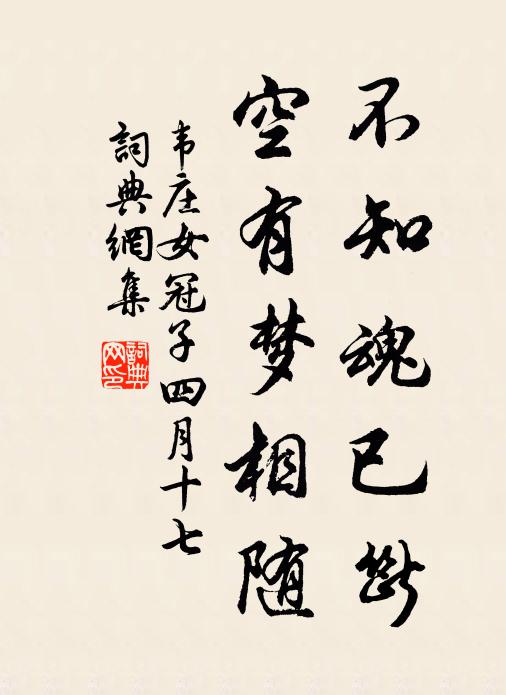 不知魂已斷
空有梦相随
韦庄女冠子四月十七
詞典網集
詞典网印